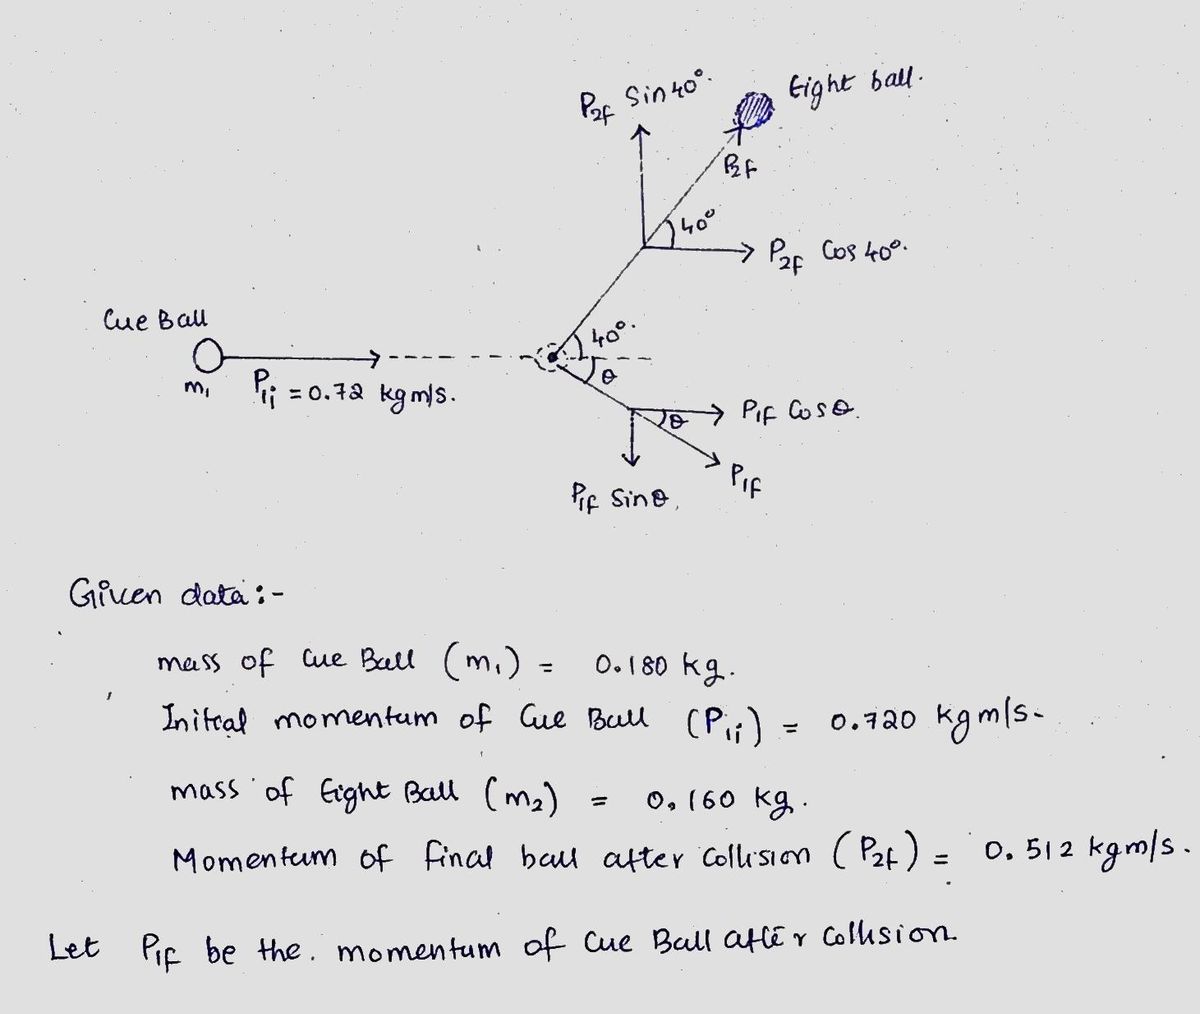 P2f Sin 40°.
Eight ball.
P2f
40°
P2f Cos 40°.
Cue Ball
40°.
θ
m1
P1i = 0.72 kg m/s.
θ
P1f Cos θ.
P1f
P1f Sin θ,
Given data :-
mass of Cue Ball (m1) = 0.180 kg.
Initial momentum of Cue Ball (P1i) = 0.720 kg m/s-
mass of Eight Ball (m2) = 0.160 kg.
Momentum of final ball after Collision (P2f) = 0.512 kg m/s.
Let P1f be the. momentum of Cue Ball after Collision.